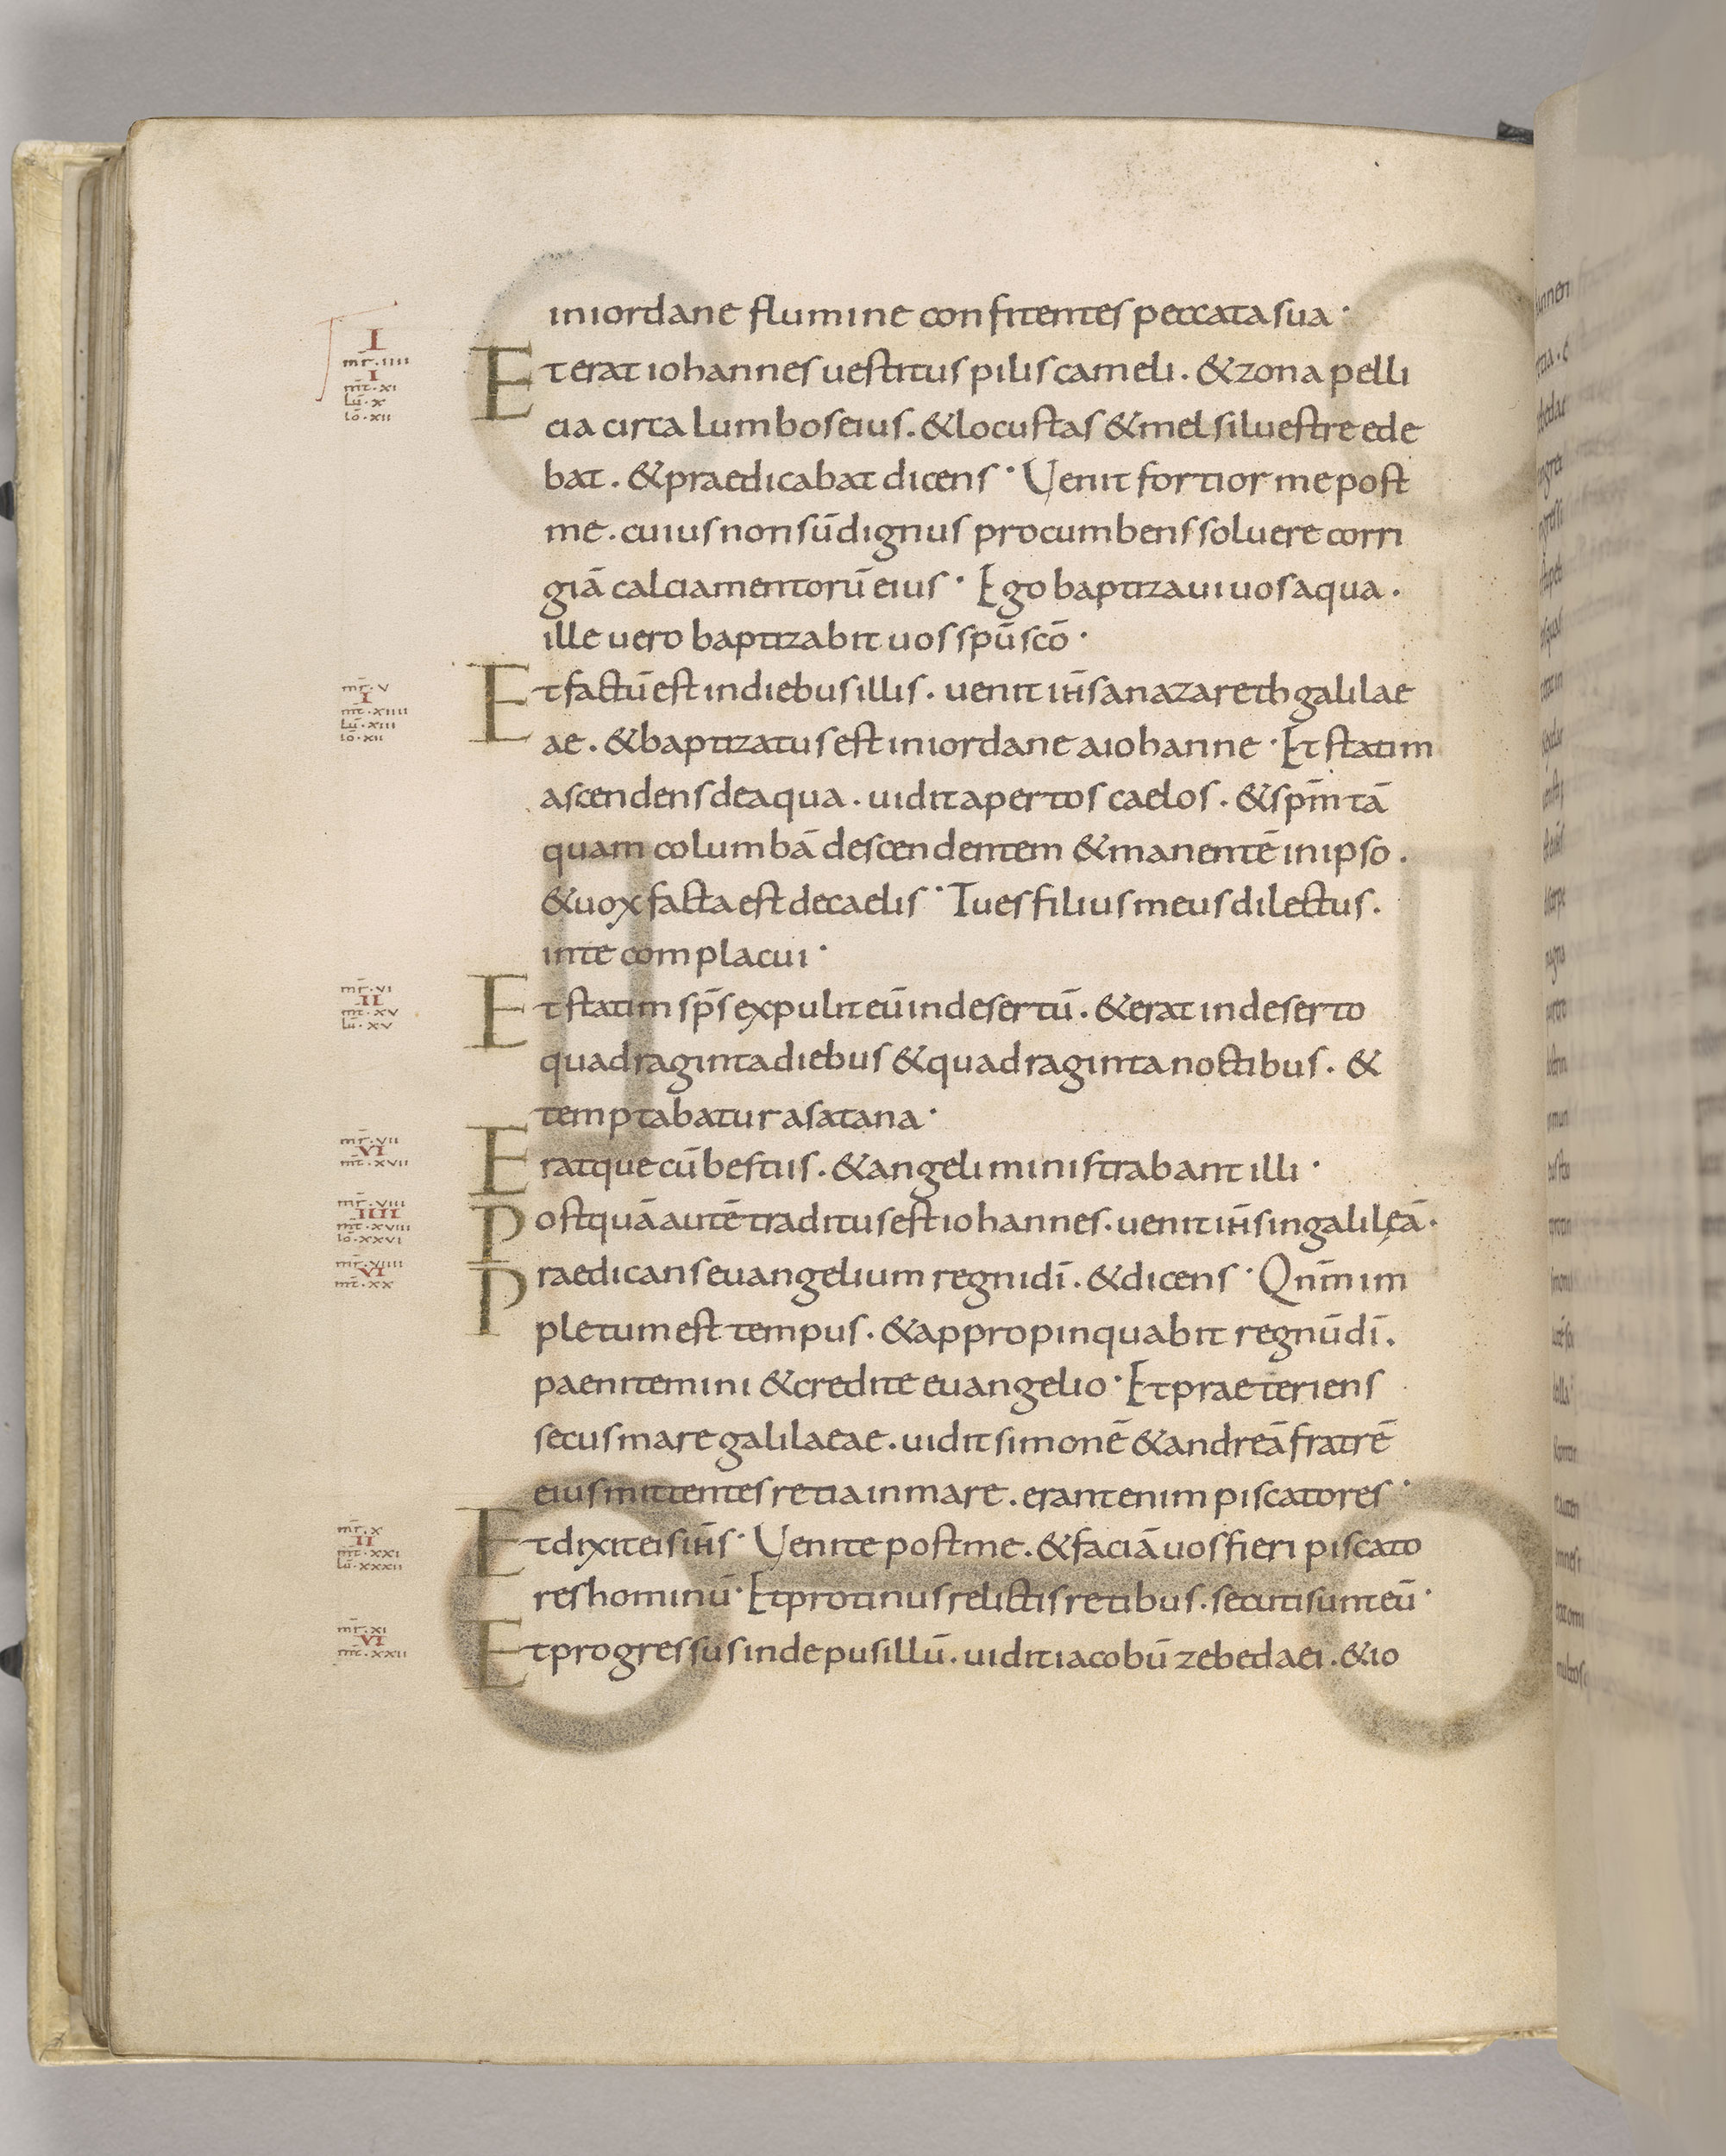 I
mr̄·IIII
I
mt̄·XI
Lū·X
Iō·XII
in iordane flumine confitentes peccata sua·
Et erat iohannes uestitus pilis cameli. & zona pelli
cia circa lumbos eius. & locustas & mel siluestre ede
bat. & praedicabat dicens· Uenit fortior me post
me. cuius non sū dignus procumbens soluere corri
giā calciamentorū eius· Ego baptizaui uos aqua.
ille uero baptizabit uos spū scō·
mr̄·V
I
mt̄·XIIII
Lū·XIII
Iō·XII
Et factū est in diebus illis. uenit ih̄s a nazareth galilae
ae. & baptizatus est in iordane a iohanne· Et statim
ascendens de aqua. uidit apertos caelos. & sp̄m tā
quam columbā descendentem & manentē in ipso.
& uox facta est de caelis· Tu es filius meus dilectus.
in te complacui·
mr̄·VI
II
mt̄·XV
Lū·XV
Et statim sp̄s expulit eū in desertū. & erat in deserto
quadraginta diebus & quadraginta noctibus. &
temptabatur a satana·
mr̄·VII
VI
mt̄·XVII
Eratque cū bestiis. & angeli ministrabant illi·
mr̄·VIII
IIII
mt̄·XVIII
Iō·XXVI
Postquā autē traditus est iohannes. uenit ih̄s in galilęā.
mr̄·VIIII
VI
mt̄·XX
Praedicans euangelium regni dī. & dicens· Qnm̄ im
pletum est tempus. & appropinquabit regnū dī.
paenitemini & credite euangelio· Et praeteriens
secus mare galilaeae. uidit simonē & andreā fratrē
eius mittentes retia in mare. erant enim piscatores·
mr̄·X
II
mt̄·XXI
Lū·XXXII
Et dixit eis ih̄s· Uenite post me. & faciā uos fieri piscato
res hominū· Et protinus relictis retibus. secuti sunt eū·
mr̄·XI
VI
mt̄·XXII
Et progressus inde pusillū. uidit iacobū zebedaei. & io